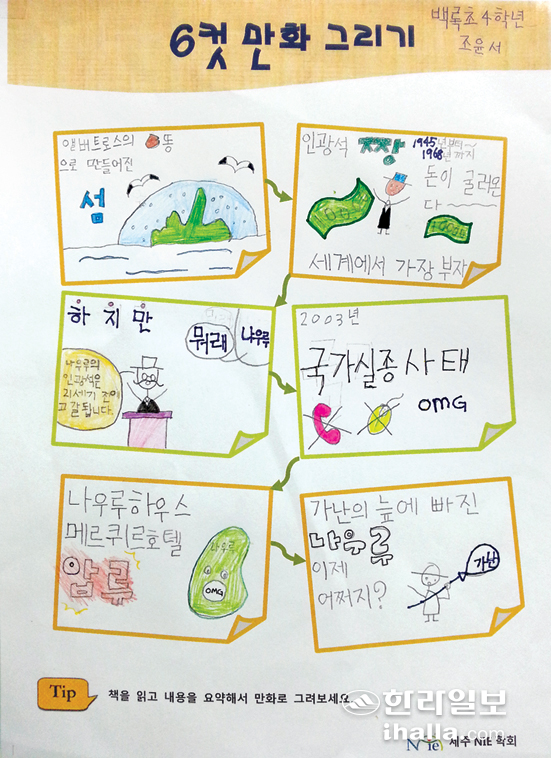 6컷 만화 그리기
백록초4학년
조윤서
앨버트로스의 똥
으로 만들어진
섬
인광석
1945년부터~
1968년까지
돈이 굴러온
다
세계에서 가장 부자
하지만
뭐래
나우루
나우루의
인광석은
21세기 전에
고갈됩니다.
2003년
국가실종사태
OMG
나우루하우스
메르퀴르호텔
압류
나우루
OMG
가난의 늪에 빠진
나우루
이제
어쩌지?
가난
Tip
책을 읽고 내용을 요약해서 만화로 그려보세요
한라일보
ihalla.com
NIE 제주 NIE 학회